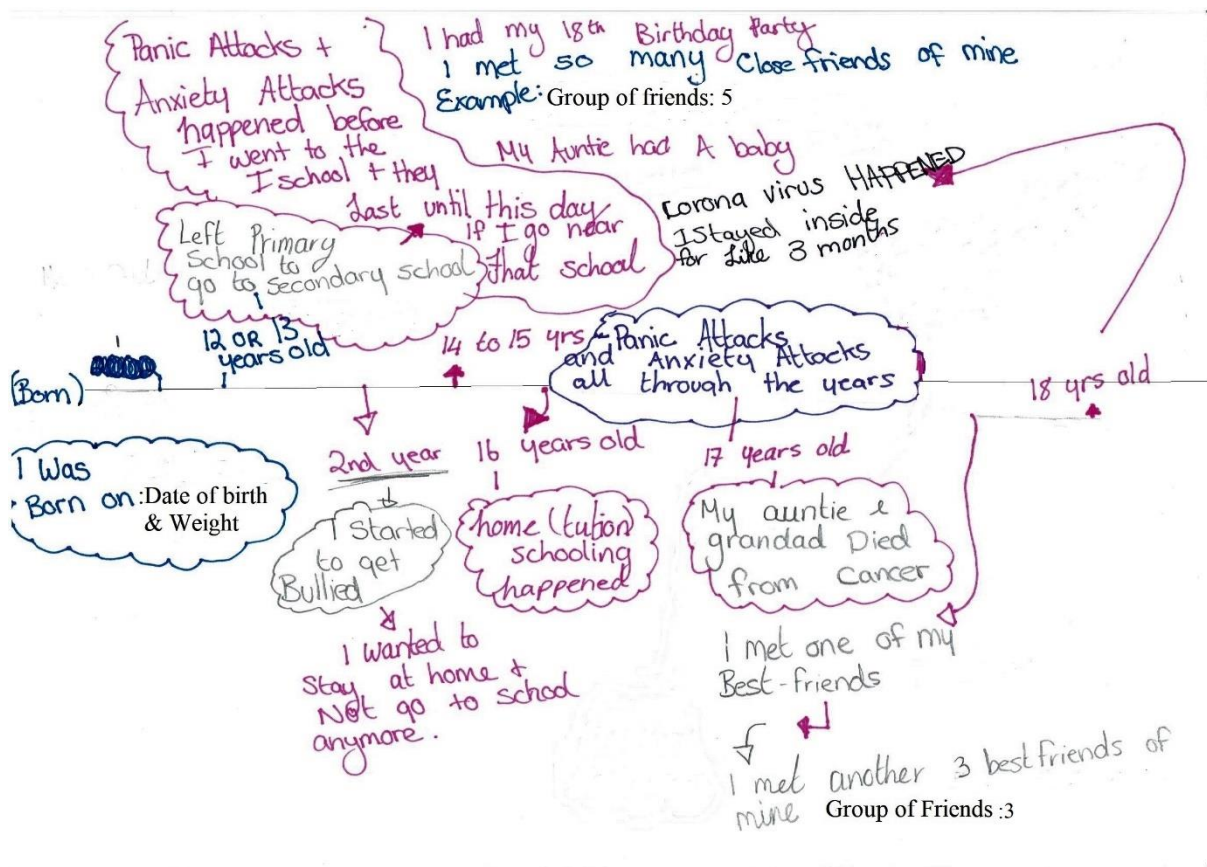 Panic Attacks +
Anxiety Attacks
happened before
I went to the
I school + they
Last until this day
if I go near
that school
I had my 18th Birthday Party
I met so many Close friends of mine
Example: Group of friends: 5
My Auntie had A baby
Corona virus HAPPENED
I Stayed inside
for Like 3 months
Left Primary
School to
go to secondary school
12 OR 13
years old
14 to 15 yrs
Panic Attacks
and Anxiety Attacks
all through the years
18 yrs old
(Born)
I Was
Born on :Date of birth
& Weight
2nd year
I Started
to get
Bullied
I wanted to
Stay at home +
Not go to school
anymore.
16 years old
home (tution)
schooling
happened
17 years old
My auntie &
grandad Died
from Cancer
I met one of my
Best-friends
I met another 3 best friends of
mine Group of Friends :3